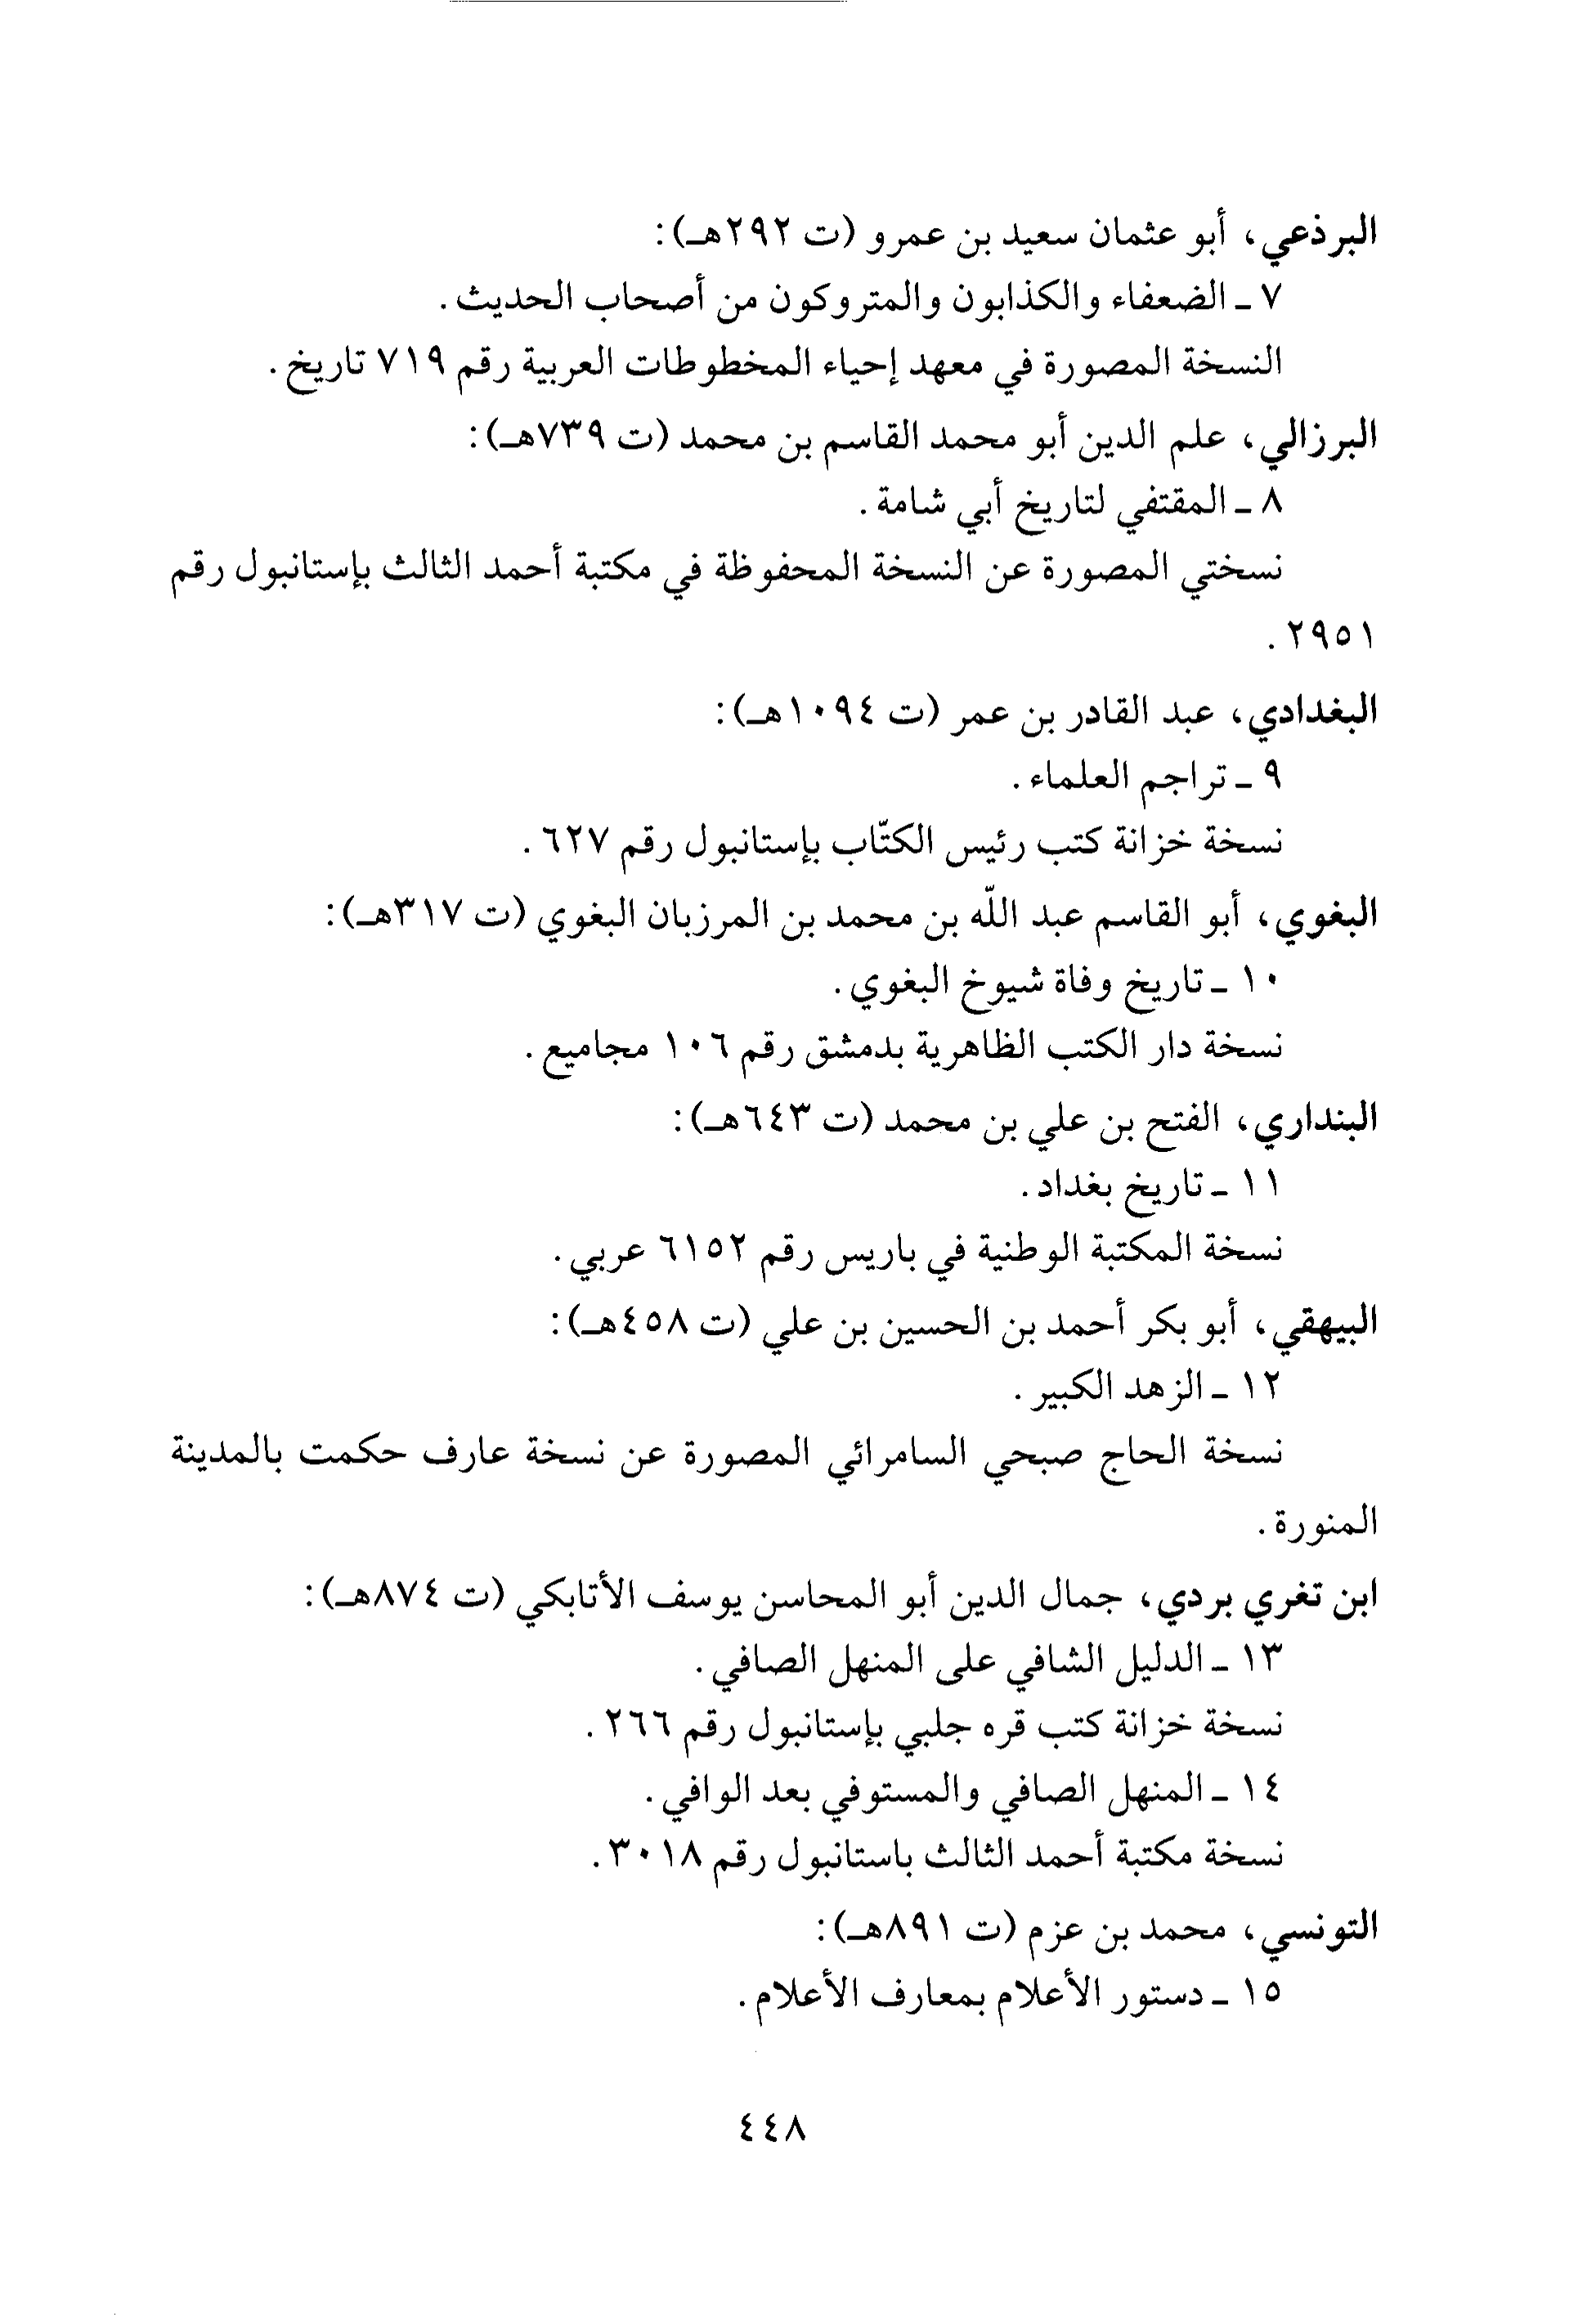 البرذعي، أبو عثمان سعيد بن عمرو (ت ٢٩٢هـ):
٧ ـ الضعفاء والكذابون والمتروكون من أصحاب الحديث.
النسخة المصورة في معهد إحياء المخطوطات العربية رقم ٧١٩ تاريخ.
البرزالي، علم الدين أبو محمد القاسم بن محمد (ت ٧٣٩هـ):
٨ ـ المقتفي لتاريخ أبي شامة.
نسختي المصورة عن النسخة المحفوظة في مكتبة أحمد الثالث بإستانبول رقم
٢٩٥١.
البغدادي، عبد القادر بن عمر (ت ١٠٩٤هـ):
٩ ـ تراجم العلماء.
نسخة خزانة كتب رئيس الكتّاب بإستانبول رقم ٦٢٧.
البغوي، أبو القاسم عبد اللّه بن محمد بن المرزبان البغوي (ت ٣١٧هـ):
١٠ ـ تاريخ وفاة شيوخ البغوي.
نسخة دار الكتب الظاهرية بدمشق رقم ١٠٦ مجاميع.
البنداري، الفتح بن علي بن محمد (ت ٦٤٣هـ):
١١ ـ تاريخ بغداد.
نسخة المكتبة الوطنية في باريس رقم ٦١٥٢ عربي.
البيهقي، أبو بكر أحمد بن الحسين بن علي (ت ٤٥٨هـ):
١٢ ـ الزهد الكبير.
نسخة الحاج صبحي السامرائي المصورة عن نسخة عارف حكمت بالمدينة
المنورة.
ابن تغري بردي، جمال الدين أبو المحاسن يوسف الأتابكي (ت ٨٧٤هـ):
١٣ ـ الدليل الشافي على المنهل الصافي.
نسخة خزانة كتب قره جلبي بإستانبول رقم ٢٦٦.
١٤ ـ المنهل الصافي والمستوفي بعد الوافي.
نسخة مكتبة أحمد الثالث باستانبول رقم ٣٠١٨.
التونسي، محمد بن عزم (ت ٨٩١هـ):
١٥ ـ دستور الأعلام بمعارف الأعلام.
٤٤٨